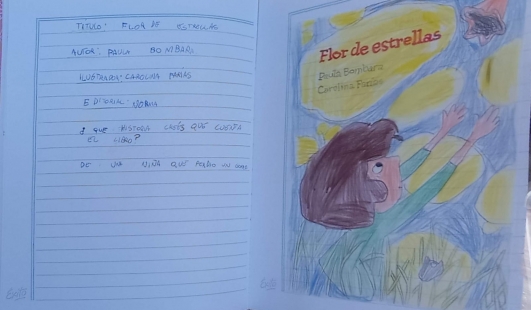 TITULO: FLOR DE ESTRELLAS
AUTOR: PAULA BOMBARA
ILUSTRADORA: CAROLINA FARIAS
EDITORIAL: NORMA
¿ QUE HISTORIA CREES QUE CUENTA
EL LIBRO?
DE UNA NIÑA QUE UN
Flor de estrellas
Paula Bombara
Carolina Farías